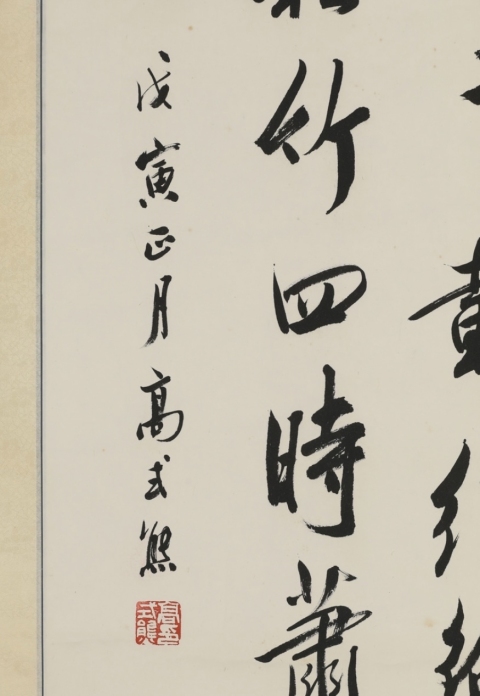 竹四時蕭
戊寅正月高式熊
高印
式熊